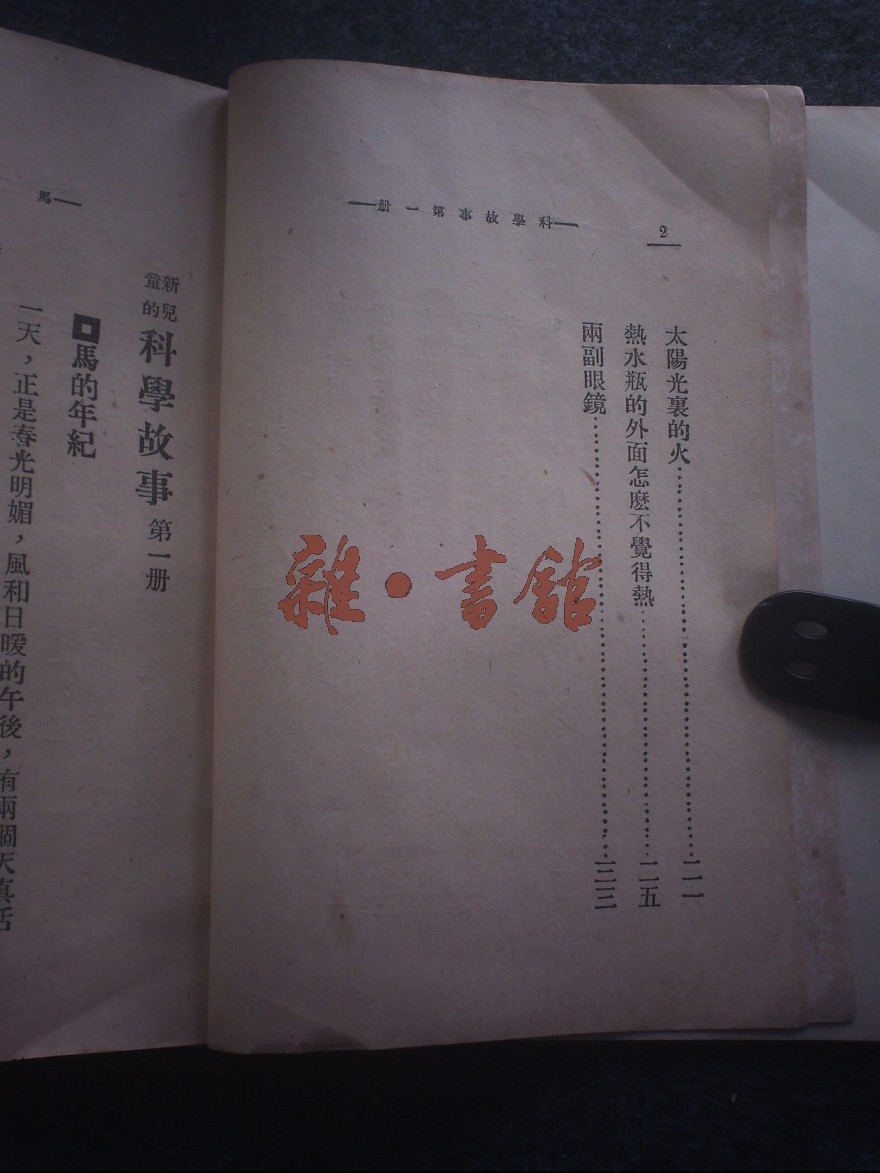 2
科學故事第一册
太陽光裏的火……二一
熱水瓶的外面怎麽不覺得熱……二五
兩副眼鏡……三三
雜·書館
馬
新兒童的 科學故事 第一册
馬的年紀
一天，正是春光明媚，風和日暖的午後，有兩個天真活